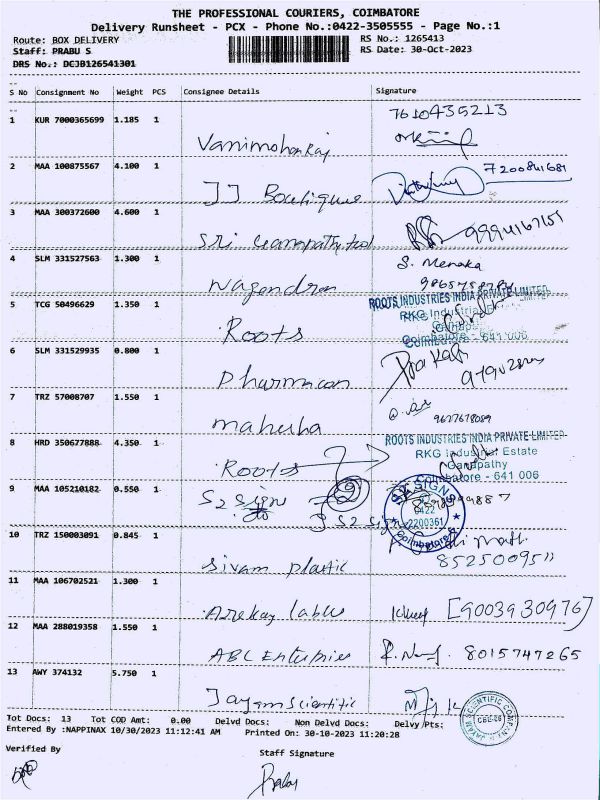 THE PROFESSIONAL COURIERS, COIMBATORE
Delivery Runsheet - PCX - Phone No.:0422-3505555 - Page No.:1
Route: BOX DELIVERY RS No.: 1265413
Staff: PRABU S RS Date: 30-Oct-2023
DRS No.: DCJB126541301
S No Consignment No Weight PCS Consignee Details Signature
1 KUR 7000365699 1.185 1 7610435213
Vanimohanraj
2 MAA 100875567 4.100 1
JJ Boutique
3 MAA 300372600 4.600 1
Sri Ganapathy
4 SLM 331527563 1.300 1 S. Menaka
Nagendran
5 TCG 50496629 1.350 1 ROOTS INDUSTRIES INDIA PRIVATE LIMITED
RKG Industrial
Roots Coimbatore - 641 006
6 SLM 331529935 0.800 1
7 TRZ 57008707 1.550 1
9677678089
8 HRD 350677888 4.350 1 ROOTS INDUSTRIES INDIA PRIVATE LIMITED
RKG Industrial Estate
Roots Ganapathy
Coimbatore - 641 006
9 MAA 105210182 0.550 1 S2 Sign
S2 Sign
0422
2200361
Coimbatore
10 TRZ 150003091 0.845 1
Sivam plastic
11 MAA 106702521 1.300 1
[9003930976]
12 MAA 288019358 1.550 1
ABC Enterprises 8015747265
13 AWY 374132 5.750 1
Jayam Scientific
Tot Docs: 13 Tot COD Amt: 0.00 Delvd Docs: Non Delvd Docs: Delvy Pts:
Entered By :NAPPINAX 10/30/2023 11:12:41 AM Printed On: 30-10-2023 11:20:28
Verified By Staff Signature
Prabu